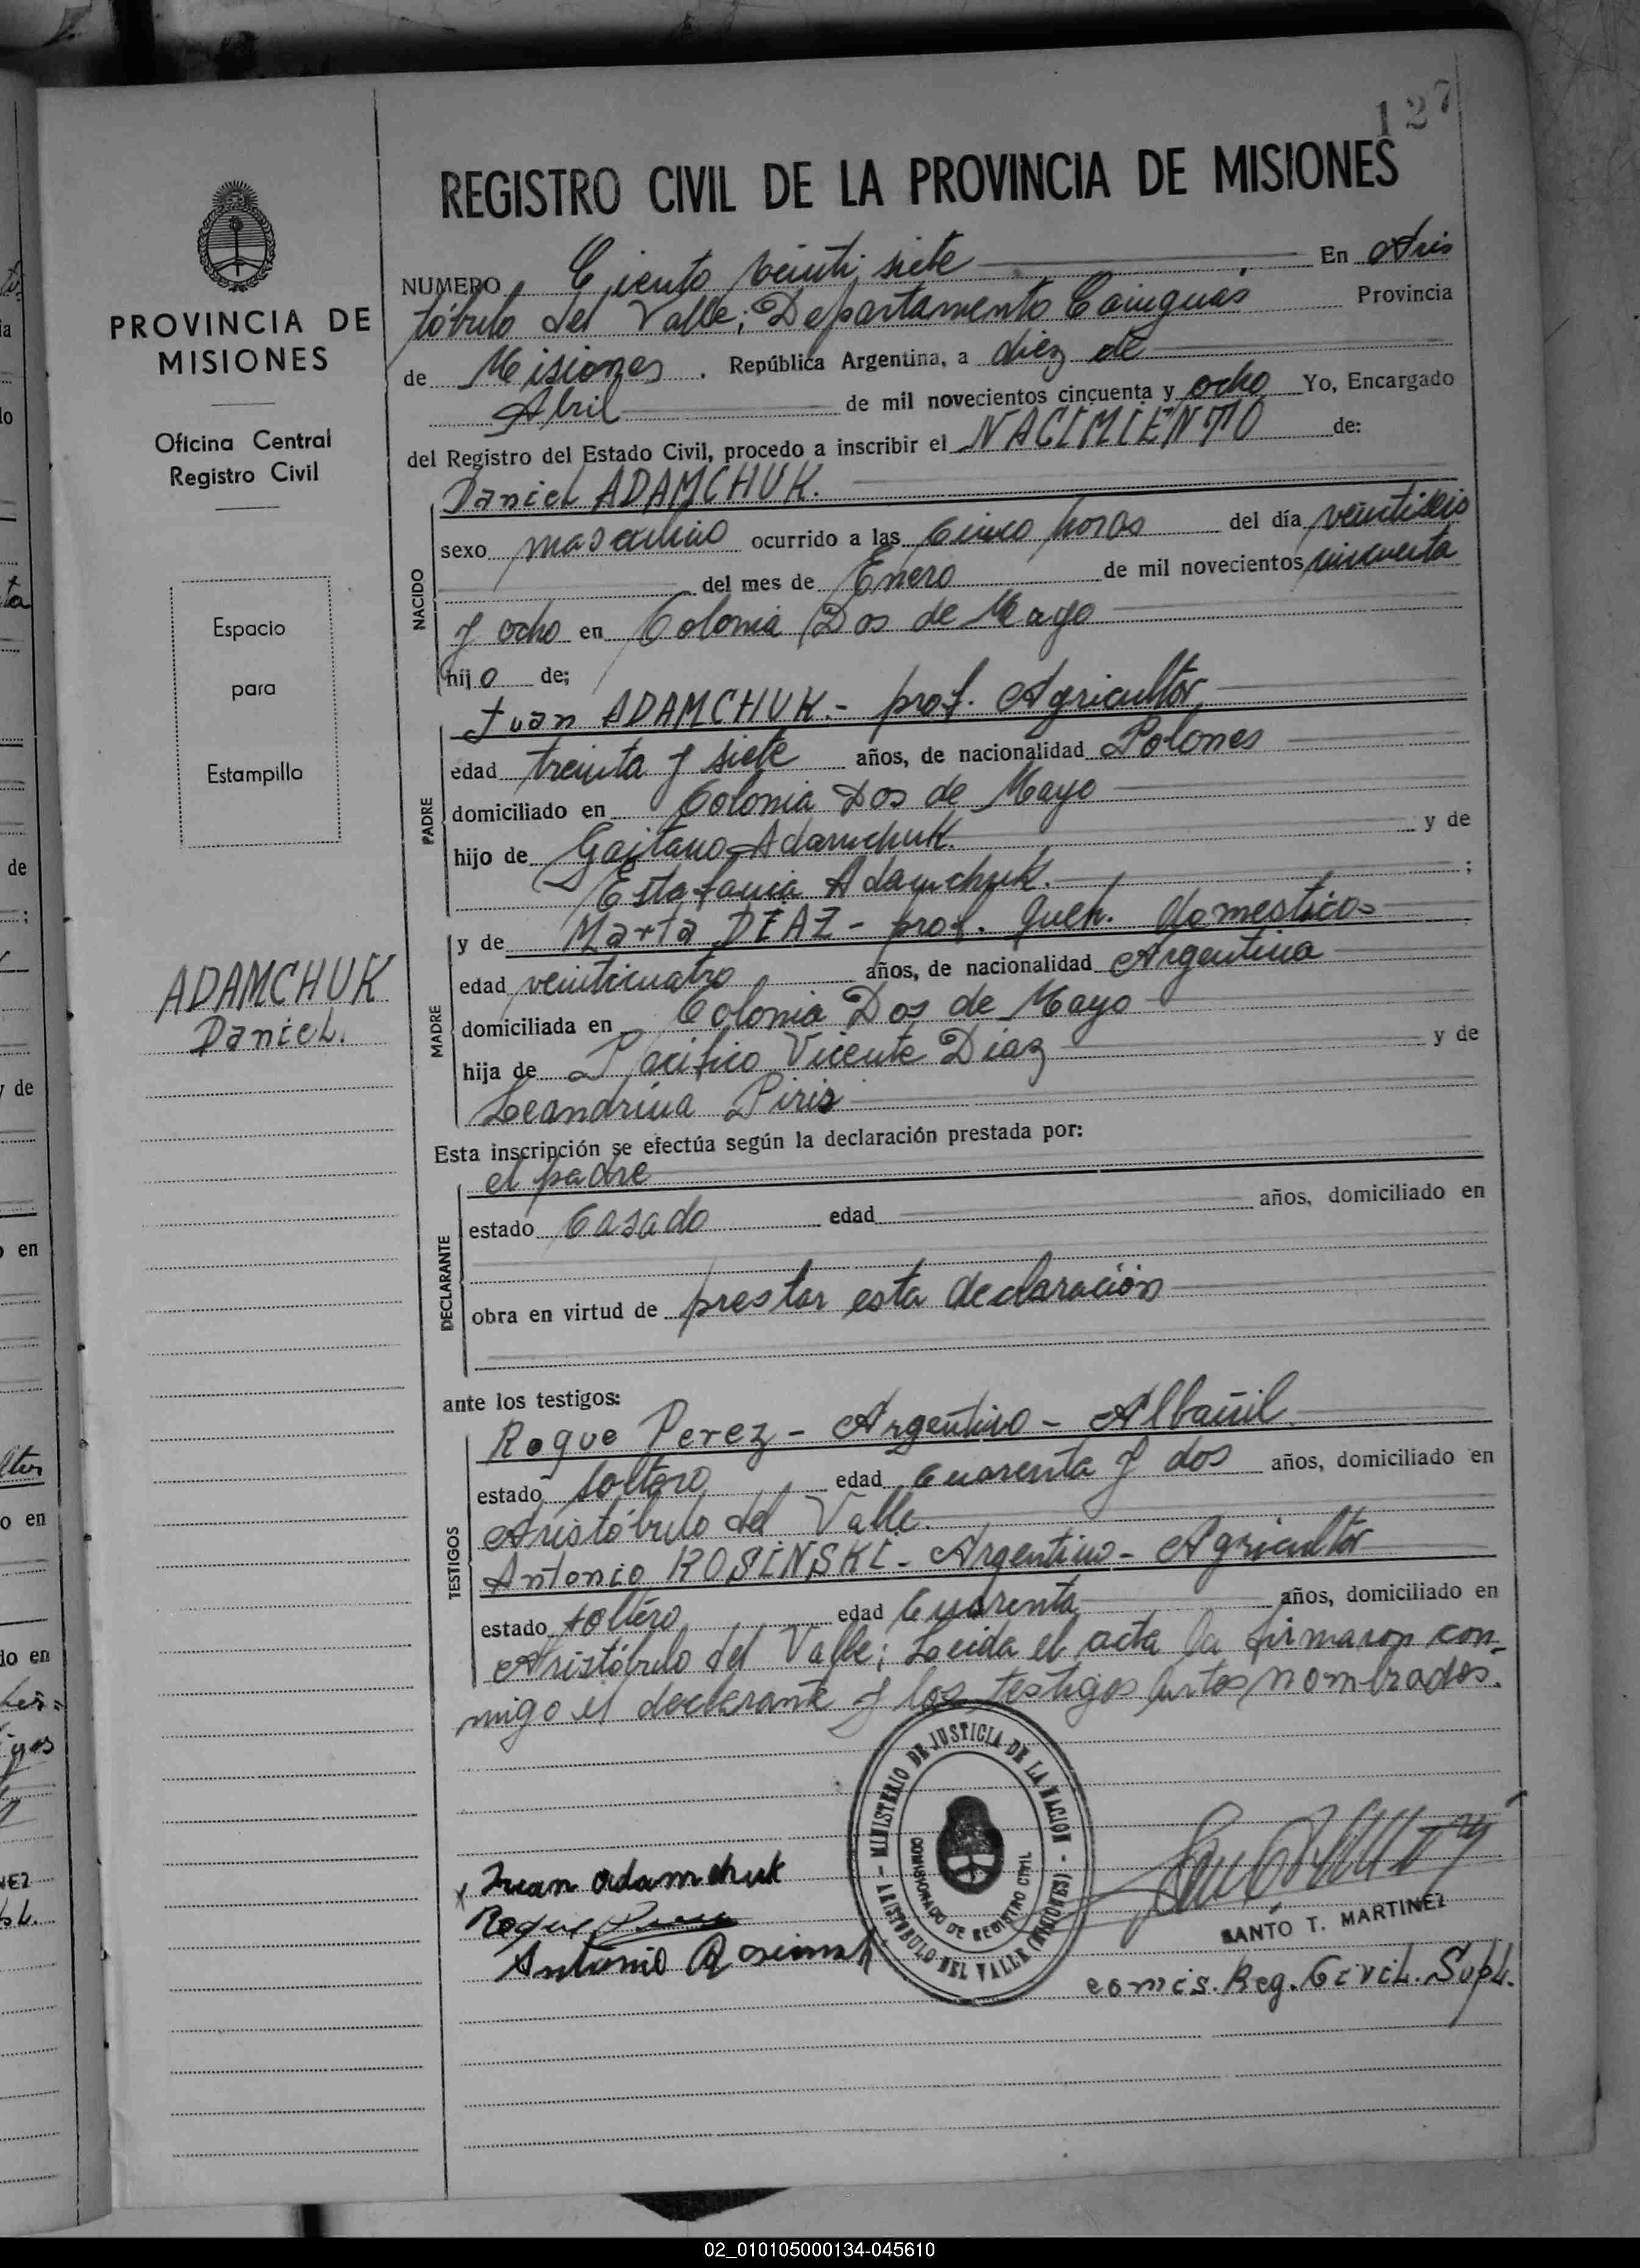 127
REGISTRO CIVIL DE LA PROVINCIA DE MISIONES
PROVINCIA DE
MISIONES
Oficina Central
Registro Civil
Espacio
para
Estampilla
ADAMCHUK
Daniel.
NUMERO Ciento veinti siete En Aris
tóbulo del Valle; Departamento Cainguás Provincia
de Misiones . República Argentina, a diez de
Abril de mil novecientos cincuenta y ocho Yo, Encargado
del Registro del Estado Civil, procedo a inscribir el NACIMIENTO de:
NACIDO
Daniel ADAMCHUK.
sexo masculino ocurrido a las Cinco horas del día veintiseis
del mes de Enero de mil novecientos cincuenta
y ocho en Colonia Dos de Mayo
hijo de;
PADRE
Juan ADAMCHUK.- prof. Agricultor
edad treinta y siete años, de nacionalidad Polones
domiciliado en Colonia Dos de Mayo
hijo de Gaitano Adamchuk. y de
Estafania Adamchuk. ;
MADRE
y de Marta DIAZ - prof. queh. domesticos
edad veinticuatro años, de nacionalidad Argentina
domiciliada en Colonia Dos de Mayo
hija de Pacifico Vicente Diaz y de
Leandrina Piris
Esta inscripción se efectúa según la declaración prestada por:
DECLARANTE
el padre
estado Casado edad años, domiciliado en
obra en virtud de prestar esta declaración
ante los testigos:
TESTIGOS
Roque Perez - Argentino - Albañil
estado soltero edad Cuarenta y dos años, domiciliado en
Aristóbulo del Valle.
Antonio ROSINSKI - Argentino - Agricultor
estado soltero edad Cuarenta años, domiciliado en
Aristóbulo del Valle; Leida el acta la firmaron con-
migo el declarante y los testigos antes nombrados.
- MINISTERIO DE JUSTICIA DE LA NACION -
ARISTOBULO DEL VALLE (MISIONES)
COMISARIADO DE REGISTRO CIVIL
Juan adamchuk
Roque Perez
Antonio Rosinski
SANTO T. MARTINEZ
comis. Reg. Civil. Supl.
02_010105000134-045610